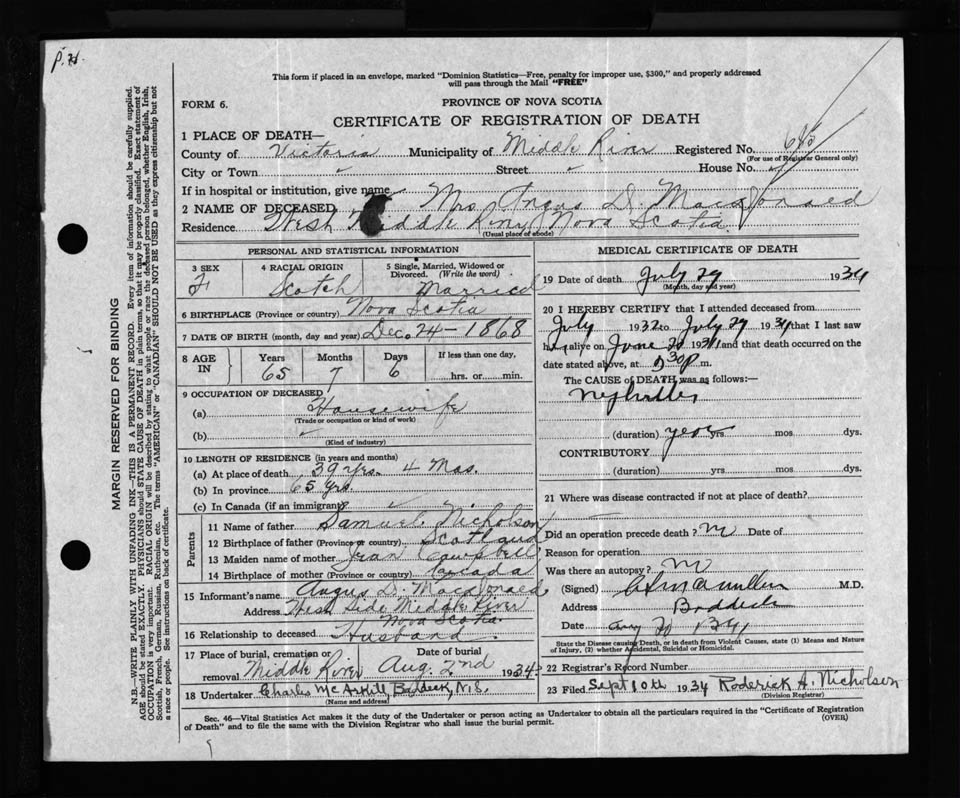 P. 21
This form if placed in an envelope, marked "Dominion Statistics—Free, penalty for improper use, $300," and properly addressed
will pass through the Mail "FREE"
FORM 6.
PROVINCE OF NOVA SCOTIA
CERTIFICATE OF REGISTRATION OF DEATH
1 PLACE OF DEATH—
County of Victoria Municipality of Middle River Registered No.
(For use of Registrar General only)
City or Town Street House No.
If in hospital or institution, give name
2 NAME OF DECEASED Mrs. Angus D. Macdonald
Residence West Middle River, Nova Scotia
(Usual place of abode)
PERSONAL AND STATISTICAL INFORMATION
3 SEX F
4 RACIAL ORIGIN Scotch
5 Single, Married, Widowed or Divorced. (Write the word) Married
6 BIRTHPLACE (Province or country) Nova Scotia
7 DATE OF BIRTH (month, day and year) Dec. 24 - 1868
8 AGE IN Years Months Days If less than one day,
65 7 6 hrs. or min.
9 OCCUPATION OF DECEASED
(a) Housewife
(Trade or occupation or kind of work)
(b)
(Kind of industry)
10 LENGTH OF RESIDENCE (in years and months)
(a) At place of death 39 yrs. 4 Mos.
(b) In province 65 yrs.
(c) In Canada (if an immigrant)
Parents
11 Name of father Samuel Nicholson
12 Birthplace of father (Province or country) Scotland
13 Maiden name of mother Jean Campbell
14 Birthplace of mother (Province or country) Canada
15 Informant's name Angus D. Macdonald
Address West Side Middle River
Nova Scotia.
16 Relationship to deceased Husband.
17 Place of burial, cremation or removal Middle River
Date of burial Aug. 2nd 1934.
18 Undertaker Charles McAskill, Baddeck, N.S.
(Name and address)
MEDICAL CERTIFICATE OF DEATH
19 Date of death July 29 1934
(Month, day and year)
20 I HEREBY CERTIFY that I attended deceased from
July 1932 to July 29 1934 that I last saw
h alive on June 20 1934 and that death occurred on the
date stated above, at 30 p. m.
The CAUSE of DEATH was as follows:—
Nephritis
(duration) years yrs. mos. dys.
CONTRIBUTORY
(duration) yrs. mos. dys.
21 Where was disease contracted if not at place of death?
Did an operation precede death? no Date of
Reason for operation
Was there an autopsy? no
(Signed) M.D.
Address Baddeck
Date Aug 1934
State the Disease causing Death, or in death from Violent Causes, state (1) Means and Nature
of Injury, (2) whether Accidental, Suicidal or Homicidal.
22 Registrar's Record Number
23 Filed Sept 10th 1934 Roderick A. Nicholson
(Division Registrar)
Sec. 46—Vital Statistics Act makes it the duty of the Undertaker or person acting as Undertaker to obtain all the particulars required in the "Certificate of Registration
of Death" and to file the same with the Division Registrar who shall issue the burial permit. (OVER)
MARGIN RESERVED FOR BINDING
N.B.—WRITE PLAINLY WITH UNFADING INK—THIS IS A PERMANENT RECORD. Every item of information should be carefully supplied.
AGE should be stated EXACTLY. PHYSICIANS should STATE CAUSE OF DEATH in plain terms, so that it may be properly classified. Exact statement of
OCCUPATION is very important. RACIAL ORIGIN will be described by stating to what people or race the deceased person belonged, whether English, Irish,
Scottish, French, German, Russian, Ruthenian, etc. The terms "AMERICAN" or "CANADIAN" SHOULD NOT BE USED as they express citizenship but not
a race or people. See instructions on back of certificate.